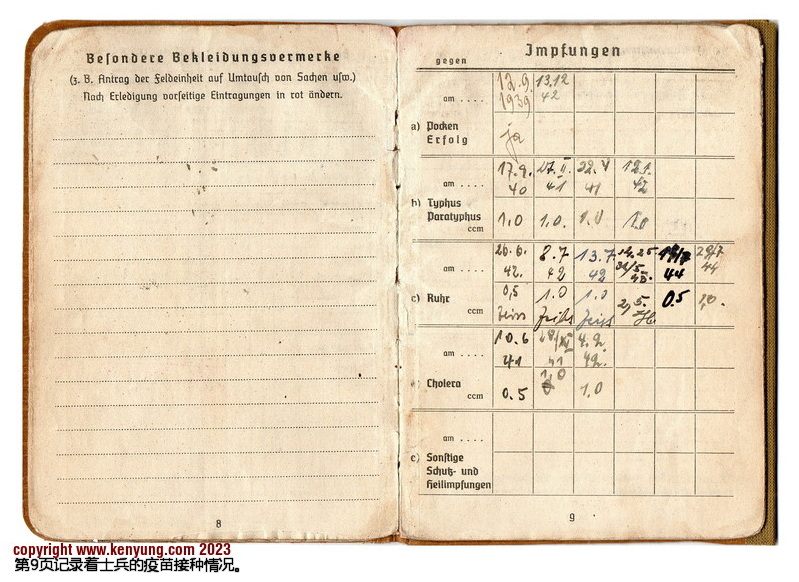 Besondere Bekleidungsvermerke
(z. B. Antrag der Feldeinheit auf Umtausch von Sachen usw.)
Nach Erledigung vorseitige Eintragungen in rot ändern.
8
Impfungen
gegen
12.9. 13.12
am . . . . 1939 42
a) Pocken
Erfolg ja
17.9. 22.4 12.1.
am . . . . 40 41 41 42
b) Typhus
Paratyphus 1,0 1,0. 1,0
ccm
26.6. 8.7 13.7
am . . . . 42. 42 42 44 44
0,5 1.0 1.0 0.5
c) Ruhr
ccm
10.6 4.2.
am . . . . 41 41 42.
1,0
Cholera
ccm 0.5 1.0
am . . . .
c) Sonstige
Schutz- und
Heilimpfungen
9
copyright www.kenyung.com 2023
第9页记录着士兵的疫苗接种情况。